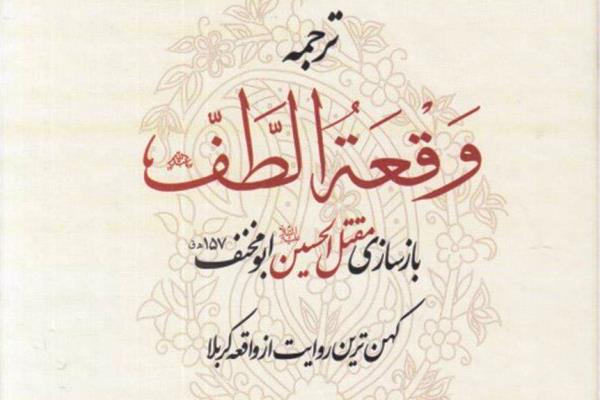 ترجمه
وَقْعَةُ الطَّفّ
بازسازی مقتل الحسین ابومخنف ۱۵۷ هـ ق
کهن ترین روایت از واقعه کربلا